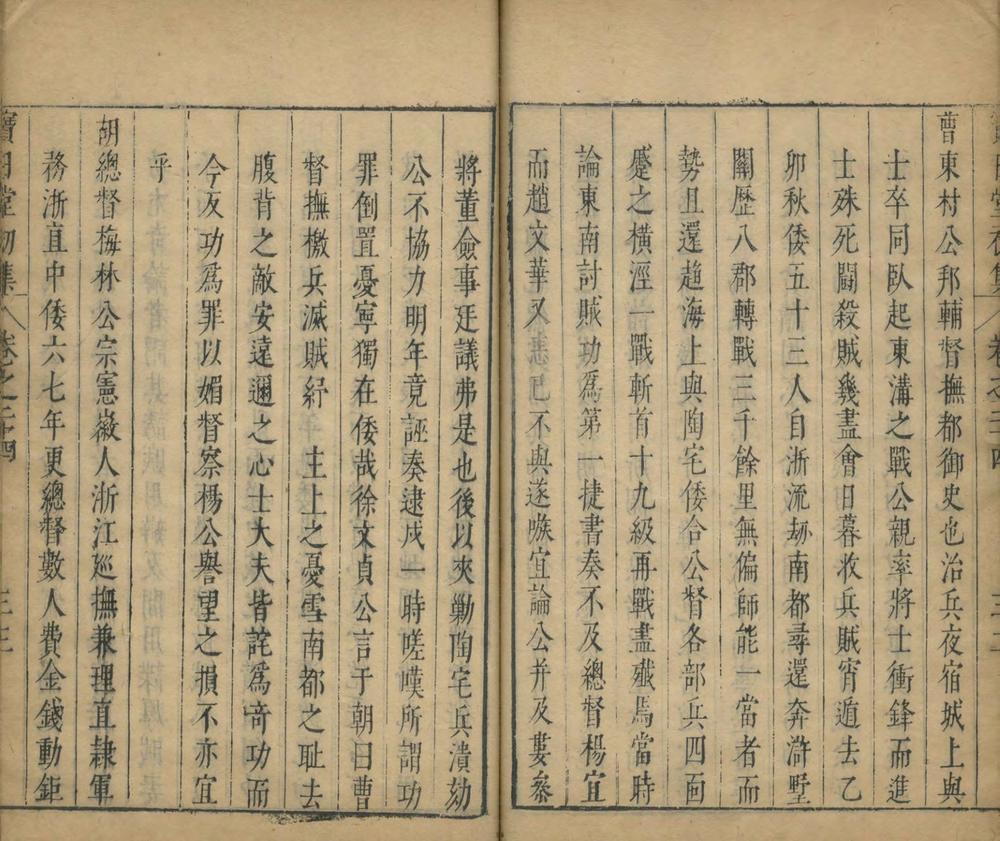 曹東村公邦輔督撫都御史也治兵夜宿城上與
士卒同臥起東溝之戰公親率將士衝鋒而進
士殊死鬬殺賊幾盡會日暮收兵賊宵遁去乙
卯秋倭五十三人自浙流劫南都尋還奔滸墅
關歷八郡轉戰三千餘里無偏師能一當者而
勢且還趨海上與陶宅倭合公督各部兵四面
蹙之橫涇一戰斬首十九級再戰盡殲焉當時
論東南討賊功爲第一捷書奏不及總督楊宜
而趙文華又恚已不與遂嗾宜論公并及婁叅
將董僉事廷議弗是也後以夾勦陶宅兵潰劾
公不協力明年竟誣奏逮戍一時嗟嘆所謂功
罪倒置憂寧獨在倭哉徐文貞公言于朝曰曹
督撫檄兵滅賊紓 主上之憂雪南都之耻去
腹背之敵安遠邇之心士大夫皆詫爲竒功而
今反功爲罪以媚督察楊公譽望之損不亦宜
乎
胡總督梅林公宗憲徽人浙江廵撫兼理直隸軍
務浙直中倭六七年更總督數人費金錢動鉅
寶日堂初集 卷之二十四 三三